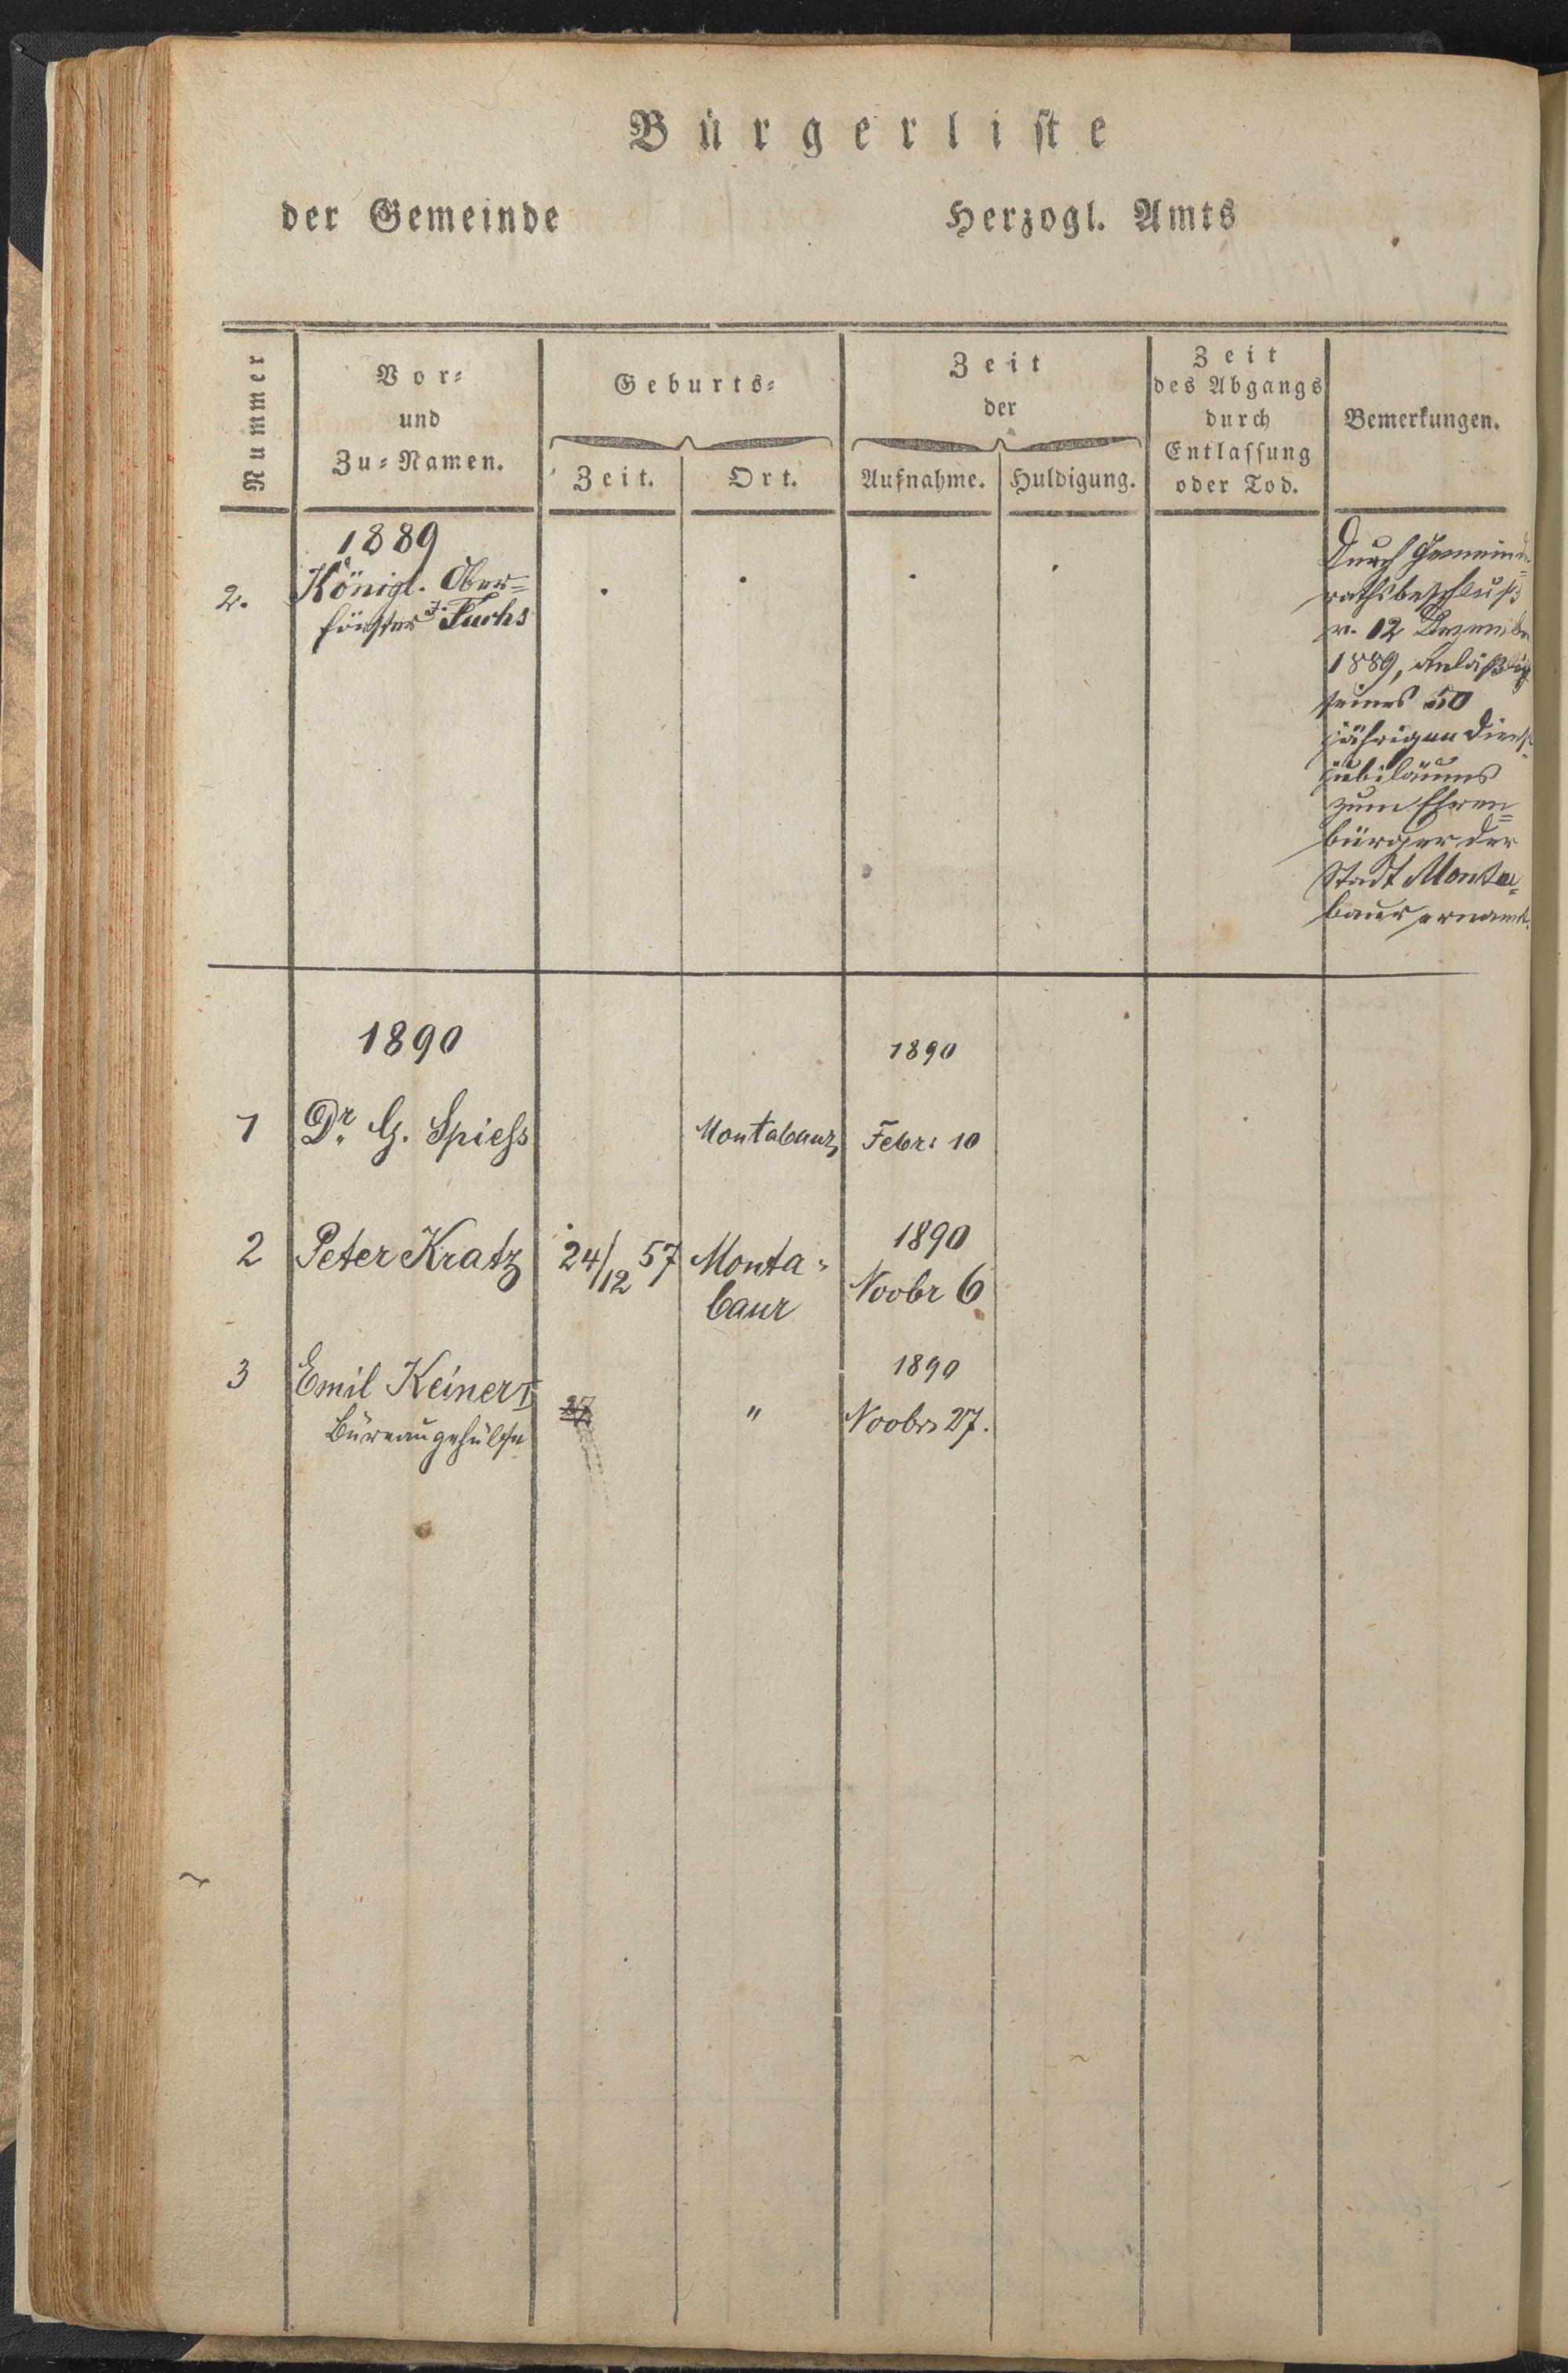 Bürgerliste
der Gemeinde Herzogl. Amts
Nummer
Vor-
und
Zu-Namen.
Geburts-
Zeit. Ort.
Zeit
der
Aufnahme. Huldigung.
Zeit
des Abgangs
durch
Entlassung
oder Tod.
Bemerkungen.
1889
2. Königl. Ober=
förster J. Fuchs
Durch Gemeinde=
rathsbeschluß
v. 12 Dezember
1889, anläßlich
seines 50
jährigen Dienst-
jubiläums
zum Ehren=
bürger der
Stadt Monta=
baur ernannt.
1890 1890
1 Dr. G. Spiess Montabaur Febr: 10
2 Peter Kratz 24/12 57 Monta-
baur
1890
Novbr 6
3 Emil Keiner I
Büreaugehülfe
27 "
1890
Novbr 27.